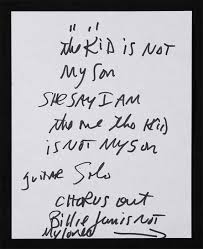 " "
the KiD is NOT
My Son
SHE SAY I AM
the one tho Kid
is NOT My Son
guitar Solo
CHORUS out
Billie Jean is not
My lover →